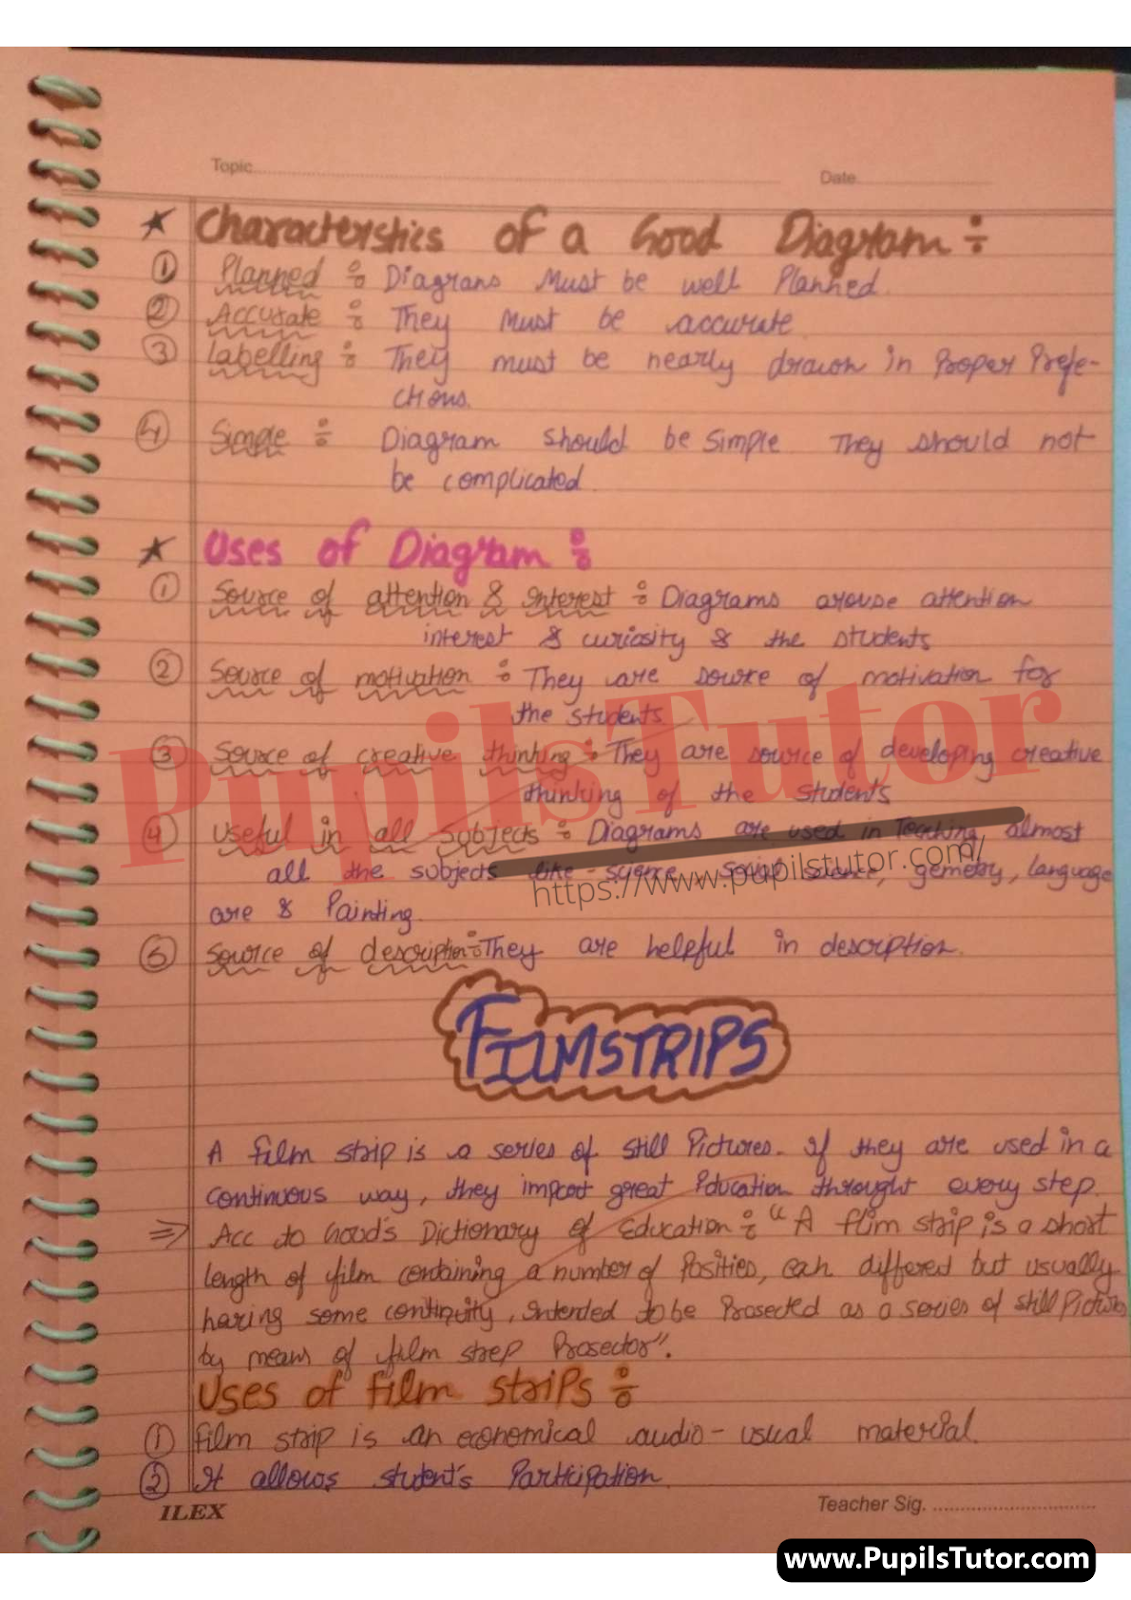 Topic Date
★ Characterstics of a Good Diagram ÷
① Planned ÷ Diagrans Must be well Planned.
② Accurate ÷ They Must be accurate
③ Labelling ÷ They must be nearly drawn in Proper Prefe-
ctions.
④ Simple ÷ Diagram should be simple They should not
be complicated.
★ Uses of Diagram ÷
① Source of attention & Interest ÷ Diagrams arouse attention
interest & curiosity & the students
② Source of motivation ÷ They are source of motivation for
the students
③ Source of creative thinking ÷ They are source of developing creative
thinking of the students
④ Useful in all subjects ÷ Diagrams are used in Teaching, almost
all the subjects like - science, social science, gemetry, language
are & Painting.
⑤ Source of description ÷ They are helpful in description.
PupilsTutor
https://www.pupilstutor.com/
FILMSTRIPS
A film strip is a series of still Pictures. If they are used in a
continuous way, they impart great Education throught every step.
⇒ Acc to Good's Dictionary of Education ÷ "A flim strip is a short
length of film containing a number of Posities, each different but usually
having some continuity, intended to be Prosected as a series of still Pictures
by means of film strep Prosector".
Uses of film strips ÷
① film strip is an economical audio-usual material.
② It allows student's Participation.
ILEX Teacher Sig.
www.PupilsTutor.com